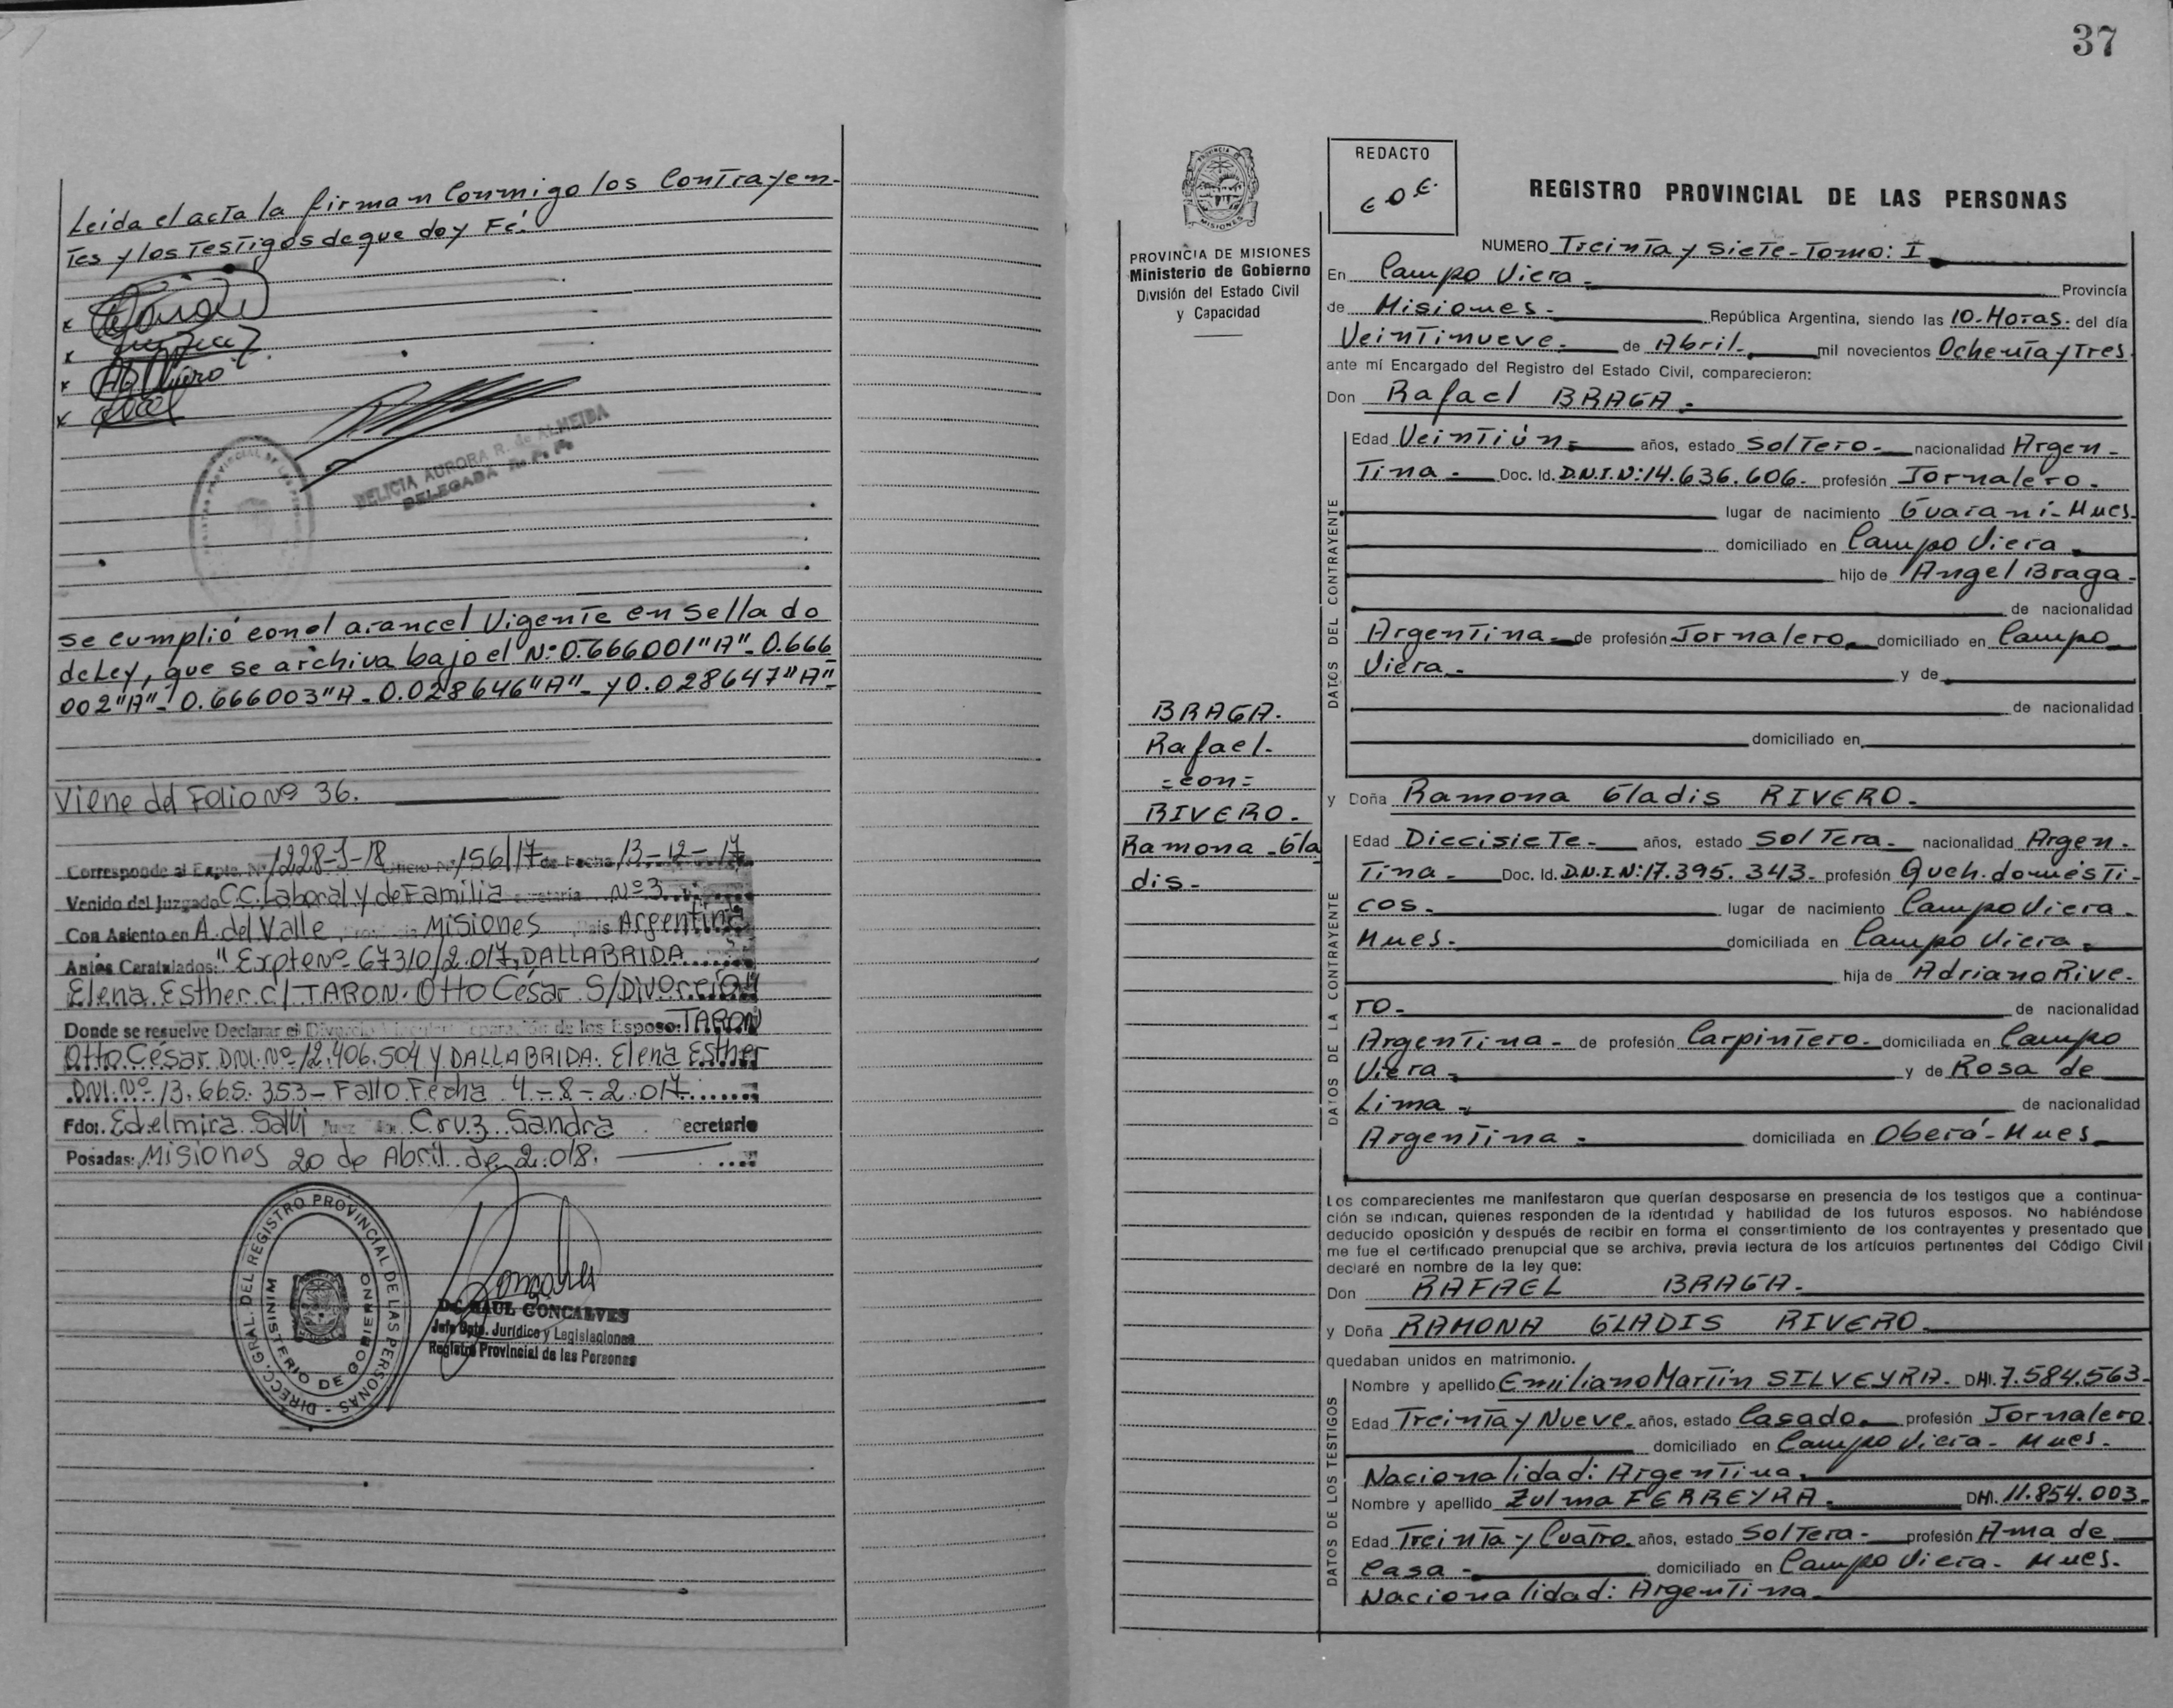 Leida el acta la firman Conmigo los Contrayen-
Tes y los Testigos de que doy Fé.
x
x
x
x
DELICIA AURORA R. de ALMEIDA
DELEGADA R. P. P.
se cumplió con el arancel Vigente en sellado
de Ley, que se archiva bajo el Nº 0.666001"A"- 0.666
002"A"- 0.666003"A- 0.028646"A"- y 0.028647"A"-
Viene del Folio Nº 36.
Corresponde al Expte. Nº 1228-J-18 Oficio Nº 156/17 de Fecha 13-12-17
Venido del Juzgado C.C. Laboral y de Familia Secretaría Nº 3
Con Asiento en A. del Valle Provincia Misiones País Argentina
Autos Caratulados: "Expte Nº 67310/2.017, DALLABRIDA
Elena Esther C/ TARON. Otto César S/Divorcio"
Donde se resuelve Declarar el Divorcio de los Esposo: TARON
Otto César DNI. Nº 12.406.504 Y DALLABRIDA. Elena Esther
DNI. Nº 13.665.353- Fallo Fecha 4-8-2.017
Fdo: Edelmira Salvi Juez Cruz Sandra Secretario
Posadas: Misiones 20 de Abril de 2.018.
DIRECC. GRAL. DEL REGISTRO PROVINCIAL DE LAS PERSONAS -
MINISTERIO DE GOBIERNO
Dr. RAUL GONCALVES
Jefe Dpto. Jurídico y Legislaciones
Registro Provincial de las Personas
37
PROVINCIA DE MISIONES
Ministerio de Gobierno
División del Estado Civil
y Capacidad
BRAGA.
Rafael.
=con=
RIVERO.
Ramona Gla
dis-
REDACTO
REGISTRO PROVINCIAL DE LAS PERSONAS
NUMERO Treinta y Siete-Tomo: I
En Campo Viera- Provincia
de Misiones- República Argentina, siendo las 10-Horas. del día
Veintinueve- de Abril- mil novecientos Ochenta y Tres
ante mí Encargado del Registro del Estado Civil, comparecieron:
Don Rafael BRAGA.-
DATOS DEL CONTRAYENTE
Edad Veintiún- años, estado Soltero- nacionalidad Argen-
Tina- Doc. Id. D.N.I.N:14.636.606- profesión Jornalero-
lugar de nacimiento Guaraní-Mnes.
domiciliado en Campo Viera
hijo de Angel Braga-
de nacionalidad
Argentina- de profesión Jornalero- domiciliado en Campo
Viera- y de
de nacionalidad
domiciliado en
y Doña Ramona Gladis RIVERO-
DATOS DE LA CONTRAYENTE
Edad Diecisiete- años, estado Soltera- nacionalidad Argen-
Tina- Doc. Id. D.N.I.N:17.395.343- profesión Queh. domésti-
cos- lugar de nacimiento Campo Viera-
Mnes- domiciliada en Campo Viera-
hija de Adriano Rive-
ro- de nacionalidad
Argentina- de profesión Carpintero- domiciliada en Campo
Viera- y de Rosa de
Lima- de nacionalidad
Argentina- domiciliada en Oberá-Mnes
Los comparecientes me manifestaron que querían desposarse en presencia de los testigos que a continua-
ción se indican, quienes responden de la identidad y habilidad de los futuros esposos. No habiéndose
deducido oposición y después de recibir en forma el consentimiento de los contrayentes y presentado que
me fue el certificado prenupcial que se archiva, previa lectura de los artículos pertinentes del Código Civil
declaré en nombre de la ley que:
Don RAFAEL BRAGA-
y Doña RAMONA GLADIS RIVERO
quedaban unidos en matrimonio.
DATOS DE LOS TESTIGOS
Nombre y apellido Emiliano Martín SILVEYRA- DNI. 7.584.563-
Edad Treinta y Nueve- años, estado Casado- profesión Jornalero
domiciliado en Campo Viera- Mnes-
Nacionalidad: Argentina-
Nombre y apellido Zulma FERREYRA- DNI. 11.854.003-
Edad Treinta y Cuatro- años, estado Soltera- profesión Ama de
Casa- domiciliado en Campo Viera- Mnes-
Nacionalidad: Argentina